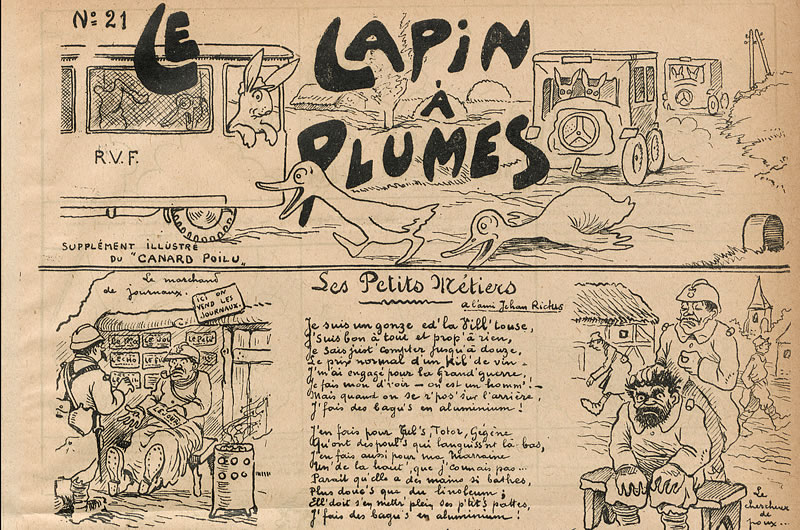 No 21
LE LAPIN
À
PLUMES
R.V.F.
SUPPLÉMENT ILLUSTRÉ
DU "CANARD POILU"
Le marchand
de journaux.
ICI ON
VEND LES
JOURNAUX.
Les Petits Métiers
a l'ami Jehan Rictus
Je suis un gonze ed'la Vill' Louse,
J'suis bon à tout et prop' à rien,
Je sais just' compter jusqu'à douze,
Le prix normal d'un Kil' de vin.
J'm'ai engagé pour la Grand' guerre,
Je fais mon d'voir — on est un homm'! —
Mais quand on se r'pos' sur l'arrière,
J'fais des bagu's en aluminium!
J'en fais pour Gul's, Totor, Gégène
Qu'ont des poul's qui languiss'nt là-bas,
J'en fais aussi pour ma Marraine
Un' de la haut', que j'connais pas...
Paraît qu'elle a des mains si bathes,
Plus douc's que du linoleum;
Ell' doit s'en mettr' plein ses p'tit's pattes,
J'fais des bagu's en aluminium!
Le
chercheur
de
poux...